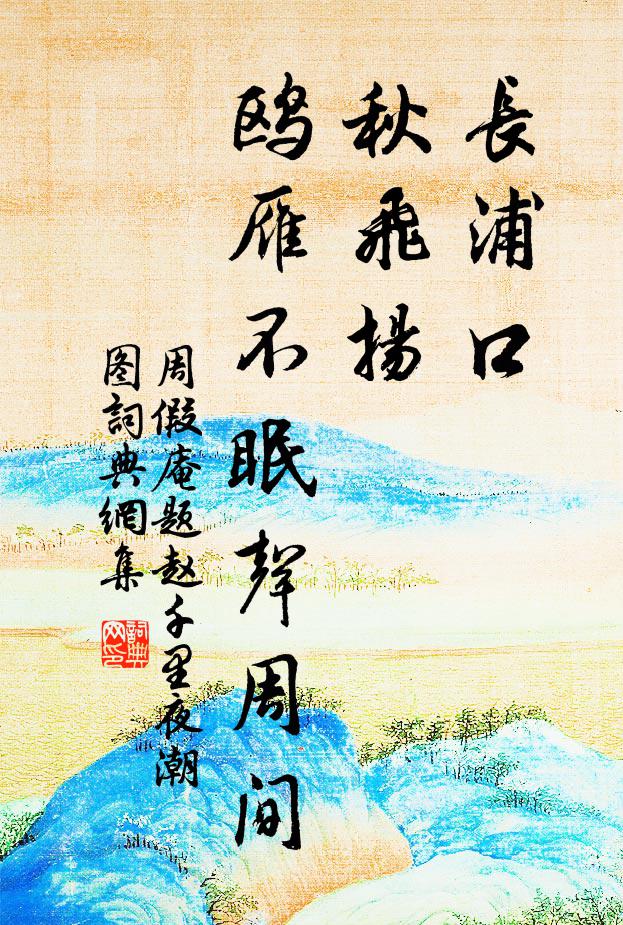 長浦口
秋飛揚
鸥雁不眠聲周间
周假庵题赵千里夜潮
图詞典網集
詞典网印